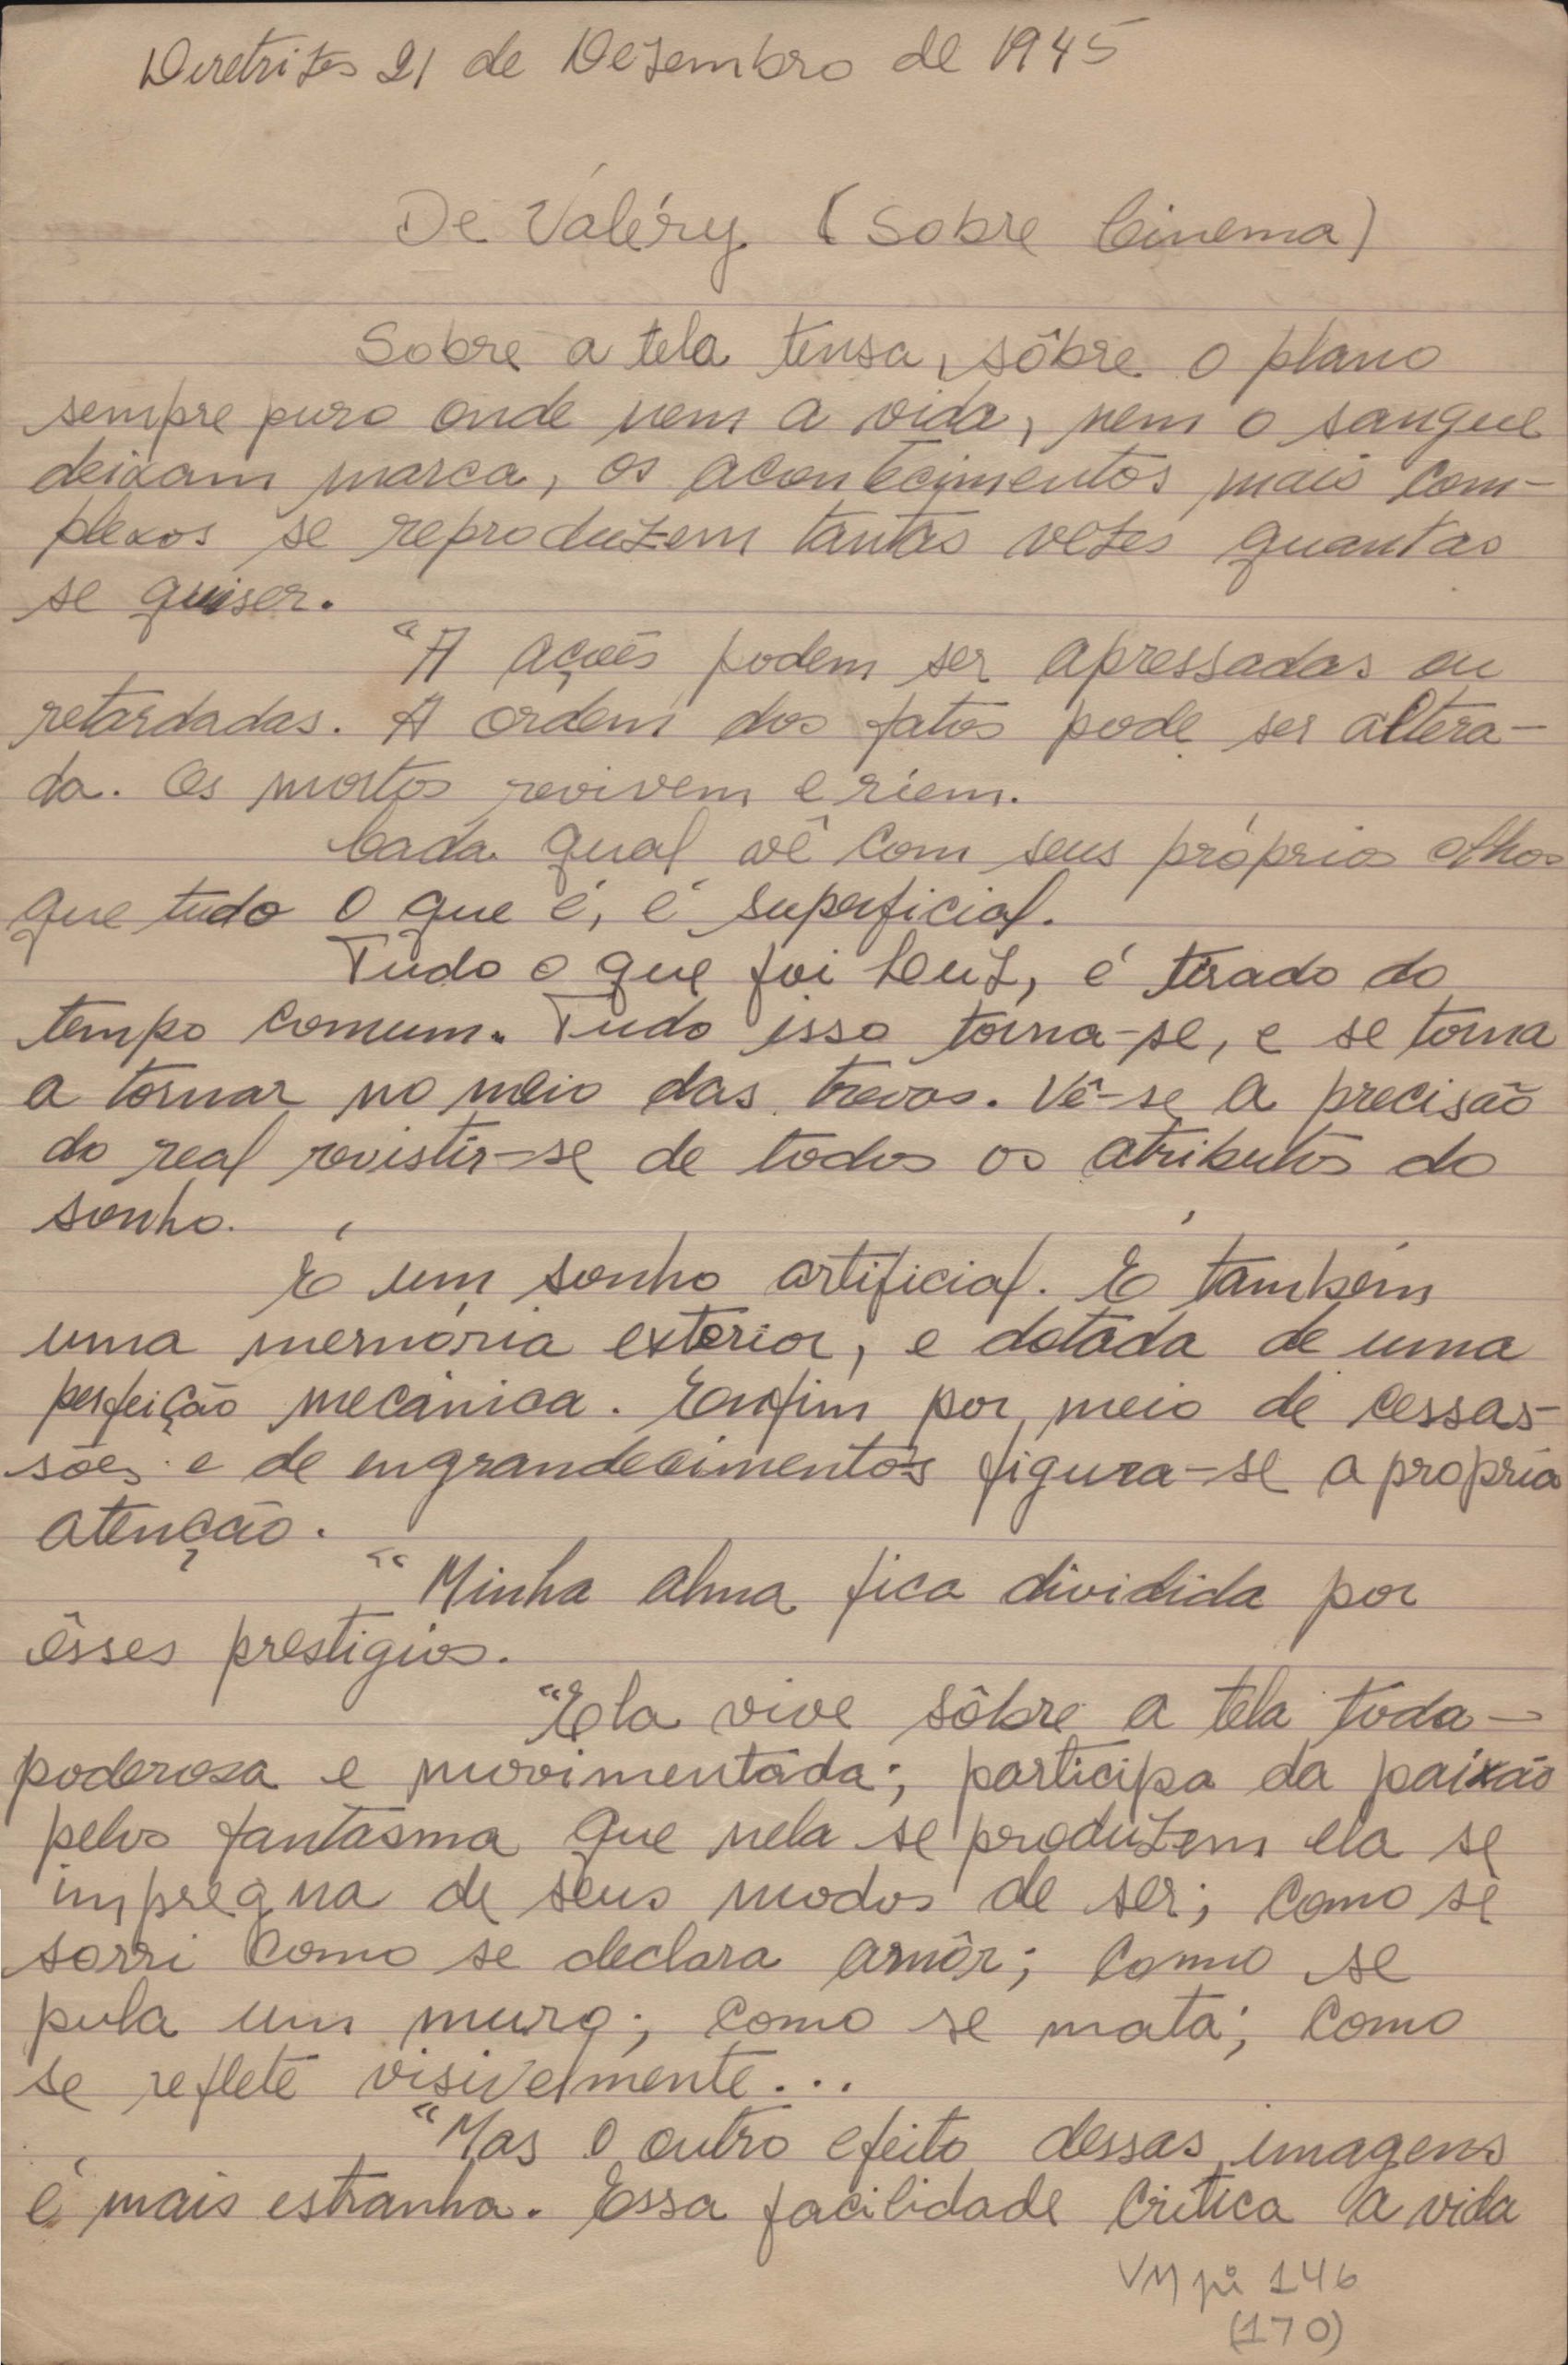 Diretrizes 21 de Dezembro de 1945
De Valéry (Sobre Cinema)
Sobre a tela tensa, sôbre o plano
sempre puro onde nem a vida, nem o sangue
deixam marca, os acontecimentos mais com-
plexos se reproduzem tantas vezes quantas
se quiser.
"A ações podem ser apressadas ou
retardadas. A ordem dos fatos pode ser altera-
da. Os mortos revivem e riem.
Cada qual vê com seus próprios olhos
que tudo o que é, é superficial.
Tudo o que foi luz, é tirado do
tempo comum. Tudo isso torna-se, e se torna
a tornar no meio das trevas. Vê-se a precisão
do real revistir-se de todos os atributos do
sonho.
É um sonho artificial. É também
uma memória exterior, e dotada de uma
perfeição mecânica. Enfim por meio de cessas-
sões e de engrandecimentos figura-se a própria
atenção.
"Minha alma fica dividida por
êsses prestigios.
"Ela vive sôbre a tela toda-
poderosa e movimentada; participa da paixão
pelos fantasma que nela se produzem ela se
impregna de seus modos de ser; como se
sorri como se declara amôr; como se
pula um muro; como se mata; como
se reflete visivelmente...
"Mas o outro efeito dessas imagens
é mais estranha. Essa facilidade critica a vida
VM pi 146
(170)